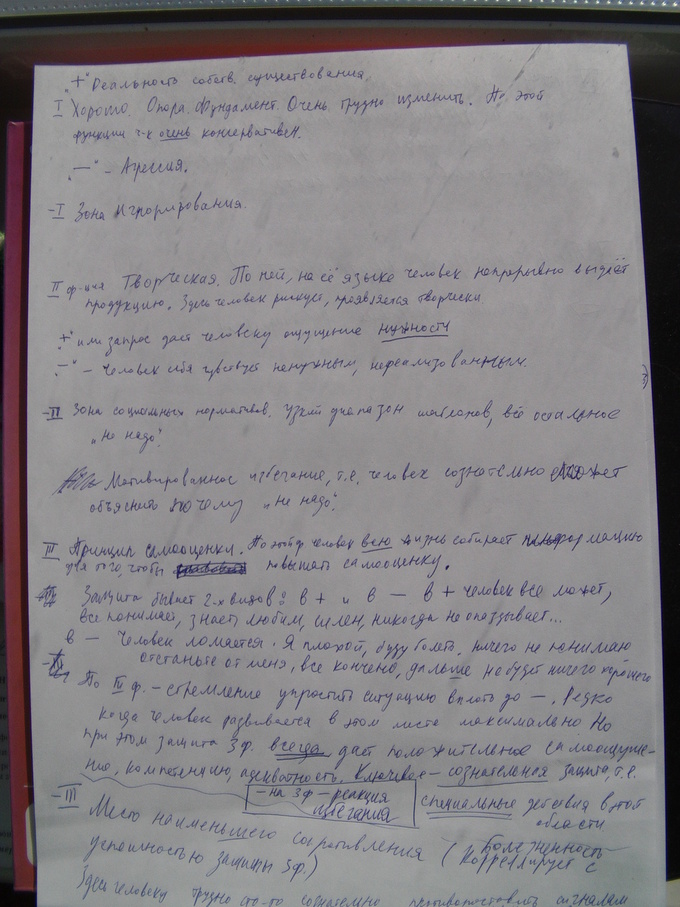 „+" Реальность собств. существования.
I Хорошо. Опора. Фундамент. Очень трудно изменить. По этой
функции ч-к очень консервативен.
„—" – Агрессия.
-I Зона игнорирования.
II ф-ция Творческая. По ней, на её языке человек непрерывно выдаёт
продукцию. Здесь человек рискует, проявляется творчески
„+" или запрос даёт человеку ощущение нужности
„—" – Человек себя чувствует ненужным, нереализованным.
-II Зона социальных нормативов. Узкий диапазон шаблонов, всё остальное
„не надо".
Мотивированное избегание, т.е. человек сознательно может
объяснить почему „не надо".
III Принцип самооценки. По этой ф человек всю жизнь собирает информацию
для того, чтобы повышать самооценку.
Защита бывает 2-х видов: в + и в — в + человек все может,
все понимает, знает, любим, силен, никогда не опаздывает...
в — Человек ломается. Я плохой, буду болеть, ничего не понимаю
отстаньте от меня, все кончено, дальше не будет ничего хорошего
По III ф. – стремление упростить ситуацию вплоть до —. Редко
когда человек развивается в этом месте максимально Но
при этом защита 3ф. всегда дает положительное самоощуще-
ние, компетенцию, адекватность. Ключевое – сознательная защита, т.е.
– на 3ф – реакция избегания
специальные действия в этой области
-III Место наименьшего сопротивления (Болезненность
коррелирует с
успешностью защиты 3ф.)
Здесь человеку трудно что-то сознательно противопоставить сигналам